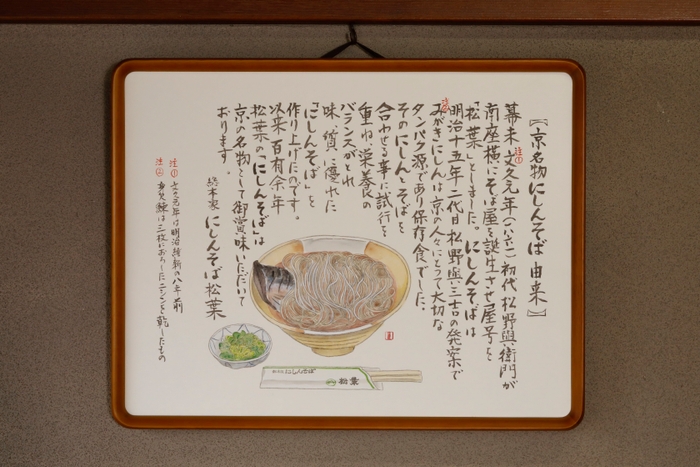 【京名物にしんそば由来】
幕末文久元年(一八六一)初代松野與衛門が
南座横にそば屋を誕生させ屋号を
「松葉」としました。にしんそばは
明治十五年二代目松野與三吉の発案で
みがきにしんは京の人々にとって大切な
タンパク源であり保存食でした。
そのにしんとそばを
合わせる事に試行を
重ね、栄養の
バランスがとれ
味、質に優れた
「にしんそば」を
作り上げたのです。
以来百有余年
松葉の「にしんそば」は
京の名物として御賞味いただいて
おります。
総本家にしんそば松葉
注① 文久元年は明治維新の八年前
注② 身欠鰊は三枚におろしたニシンを乾したもの
注①
注②
にしんそば
松葉